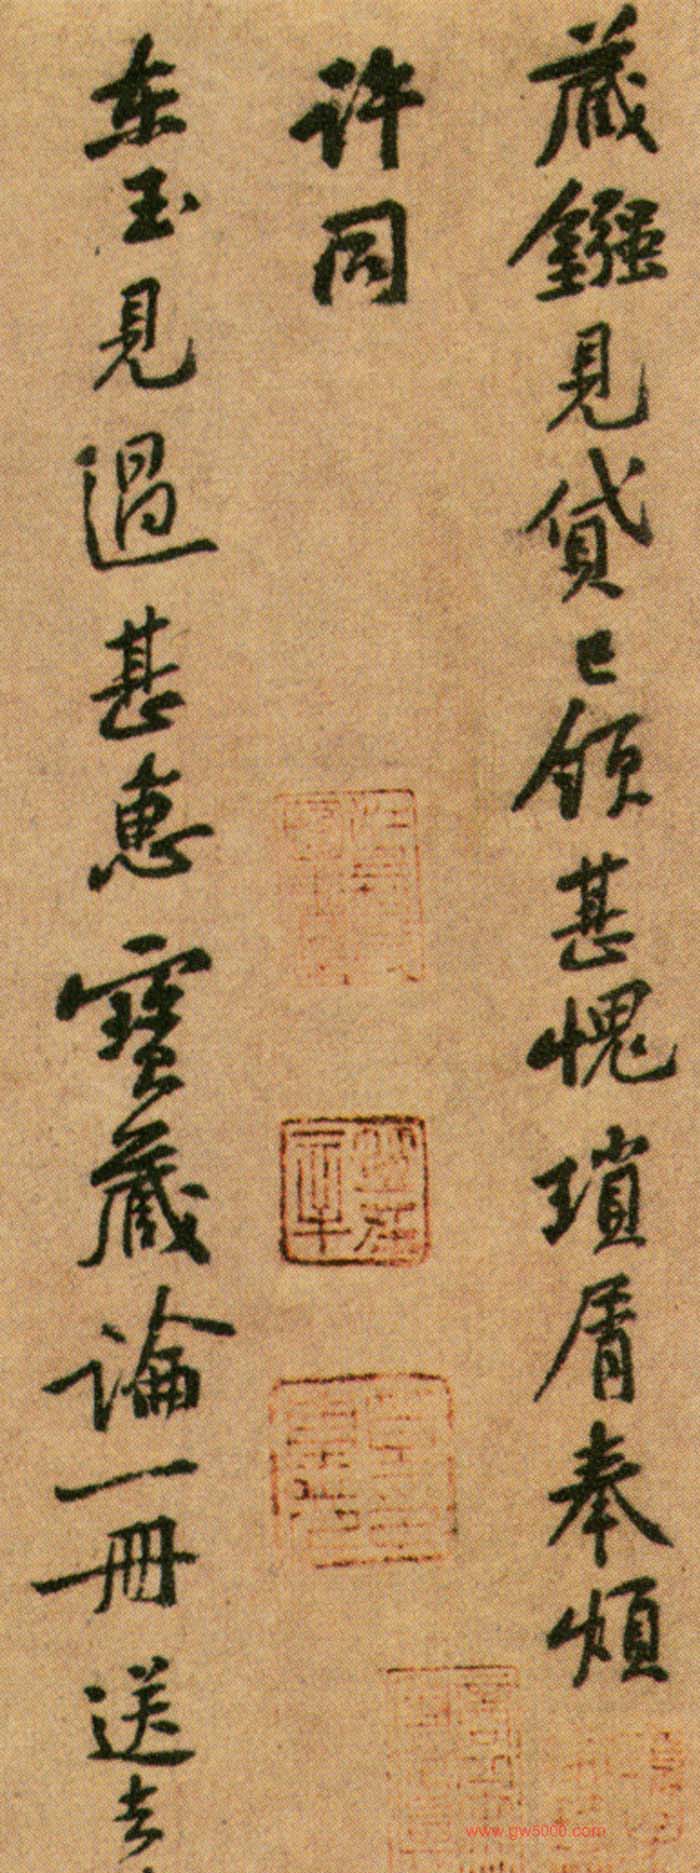 藏鏹見貸已領甚愧瑣屑奉煩
許同
東玉見過甚惠寶藏論一冊送去
www.gw5000.com